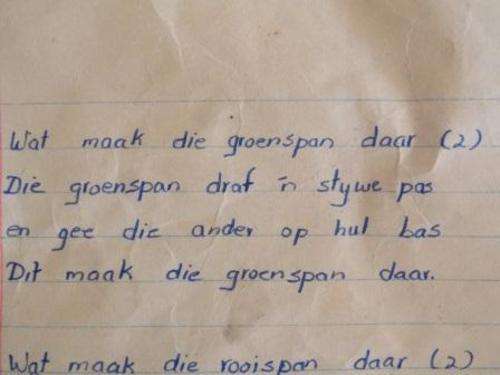 Wat maak die groenspan daar (2)
Die groenspan draf 'n stywe pas
en gee die ander op hul bas
Dit maak die groenspan daar.
Wat maak die rooispan daar (2)